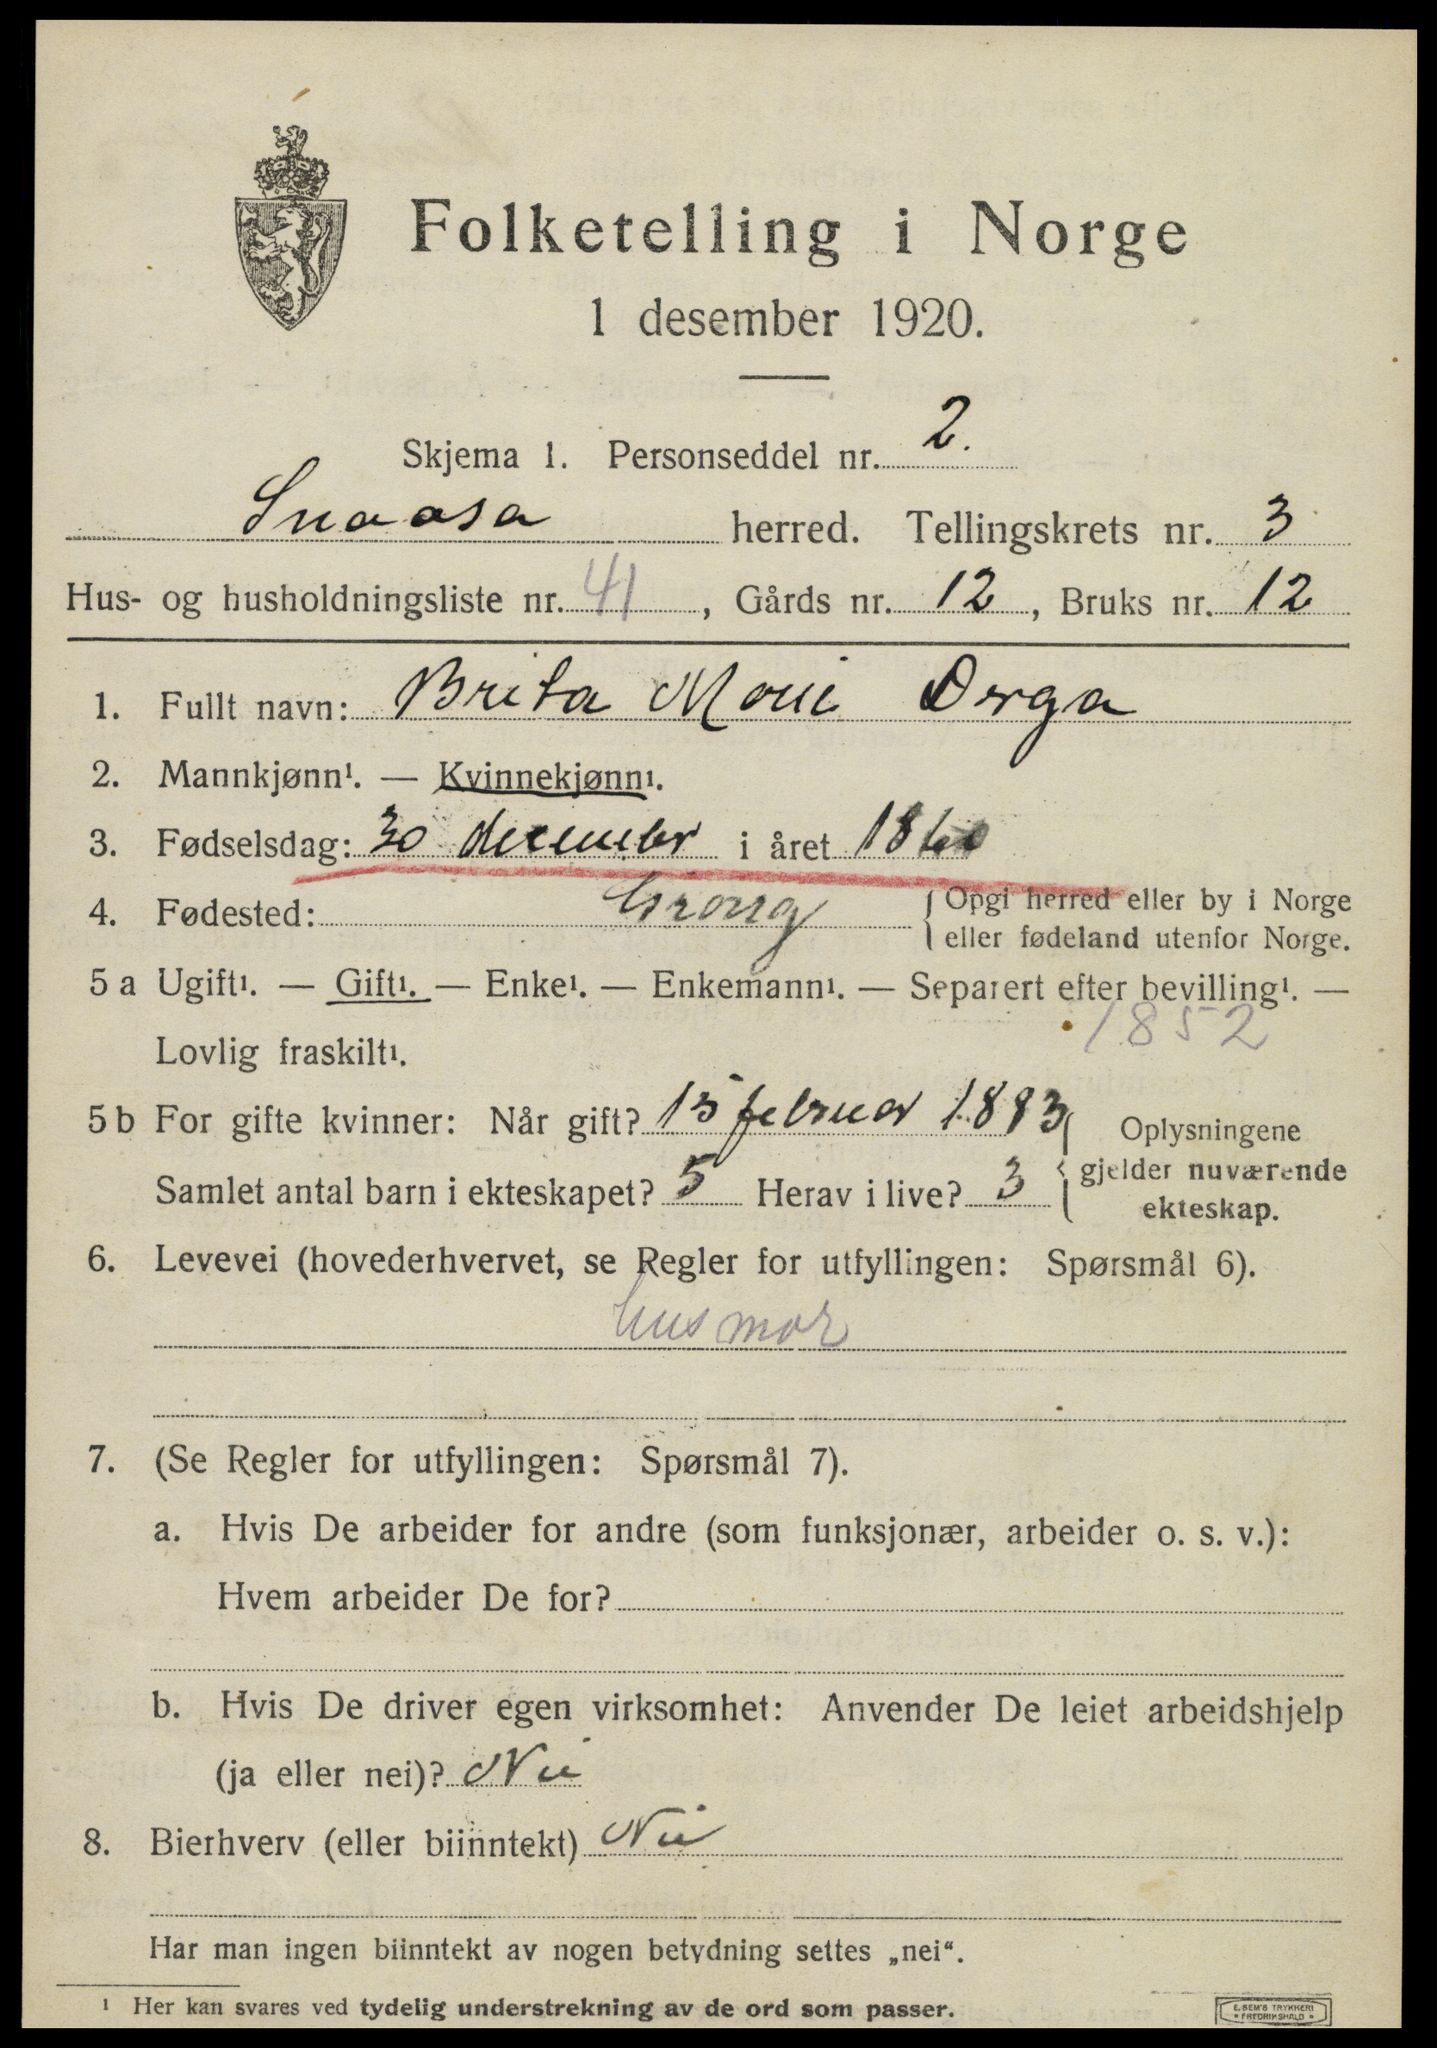 Folketelling i Norge
1 desember 1920.
Skjema 1. Personseddel nr. 2.
Snaasa herred. Tellingskrets nr. 3
Hus- og husholdningsliste nr. 41, Gårds nr. 12, Bruks nr. 12
1. Fullt navn: Brita Morie Derga
2. Mannkjønn¹. — Kvinnekjønn¹.
3. Fødselsdag: 30 december i året 1860
4. Fødested: Grong {Opgi herred eller by i Norge
eller fødeland utenfor Norge.
5 a Ugift¹. — Gift¹. — Enke¹. — Enkemann¹. — Separert efter bevilling¹. —
1852
Lovlig fraskilt¹.
5 b For gifte kvinner: Når gift? 15 februar 1883 { Oplysningene
Samlet antal barn i ekteskapet? 5 Herav i live? 3 gjelder nuværende
ekteskap.
6. Levevei (hovederhvervet, se Regler for utfyllingen: Spørsmål 6).
husmor
7. (Se Regler for utfyllingen: Spørsmål 7).
a. Hvis De arbeider for andre (som funksjonær, arbeider o. s. v.):
Hvem arbeider De for?
b. Hvis De driver egen virksomhet: Anvender De leiet arbeidshjelp
(ja eller nei)? Nei
8. Bierhverv (eller biinntekt) Nei
Har man ingen biinntekt av nogen betydning settes „nei“.
¹ Her kan svares ved tydelig understrekning av de ord som passer.
E. SEM'S TRYKKERI
* FREDRIKSHALD *